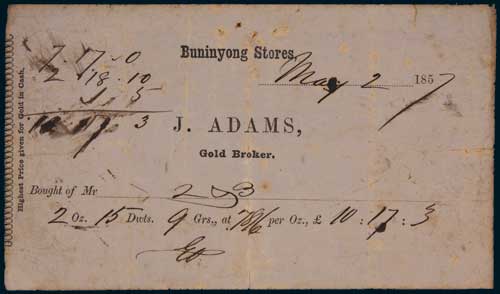 Buninyong Stores,
May 2 1857
7 . 17 . 0
2 18 . 10
1 . 5
10 17 3
Highest Price given for Gold in Cash.
J. ADAMS,
Gold Broker.
Bought of Mr
2 Oz. 15 Dwts. 9 Grs., at 78/6 per Oz., £ 10 : 17 : 3